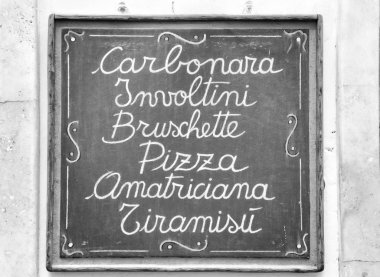 Carbonara
Involtini
Bruschette
Pizza
Amatriciana
Tiramisù